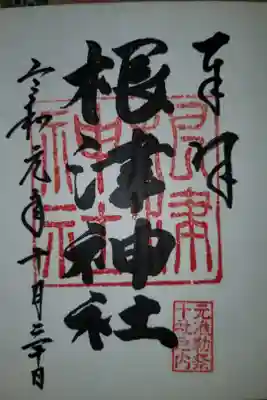 奉拝
根津神社
令和元年十月二十日
根津
神社
元准勅祭
十社之内